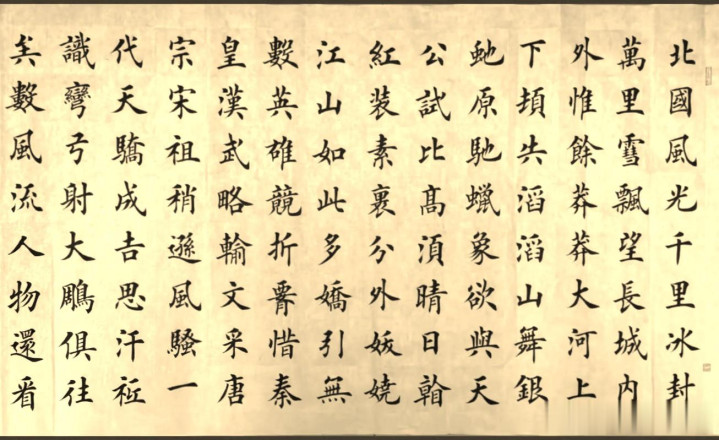 北國風光千里冰封
萬里雪飄望長城內
外惟餘莽莽大河上
下頓失滔滔山舞銀
虵原馳蠟象欲與天
公試比高須晴日
紅裝素裹分外妖嬈
江山如此多嬌引無
數英雄競折惜秦
皇漢武略輸文采唐
宗宋祖稍遜風騷一
代天驕成吉思汗秪
識彎弓射大鵰俱往
矣數風流人物還看